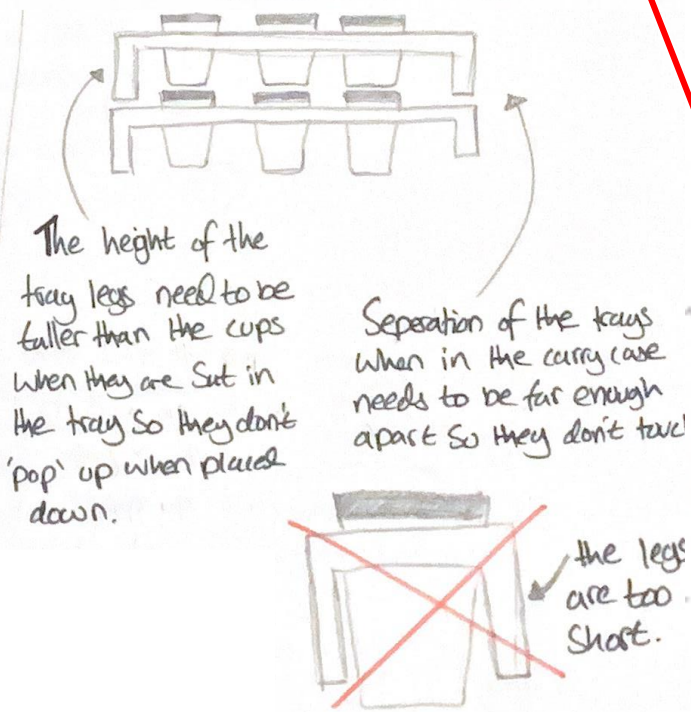 The height of the
tray legs need to be
taller than the cups
when they are Sut in
the tray So they don't
'pop' up when placed
down.
Seperation of the trays
when in the carry case
needs to be far enough
apart So they don't touc
the legs
are too
Short.